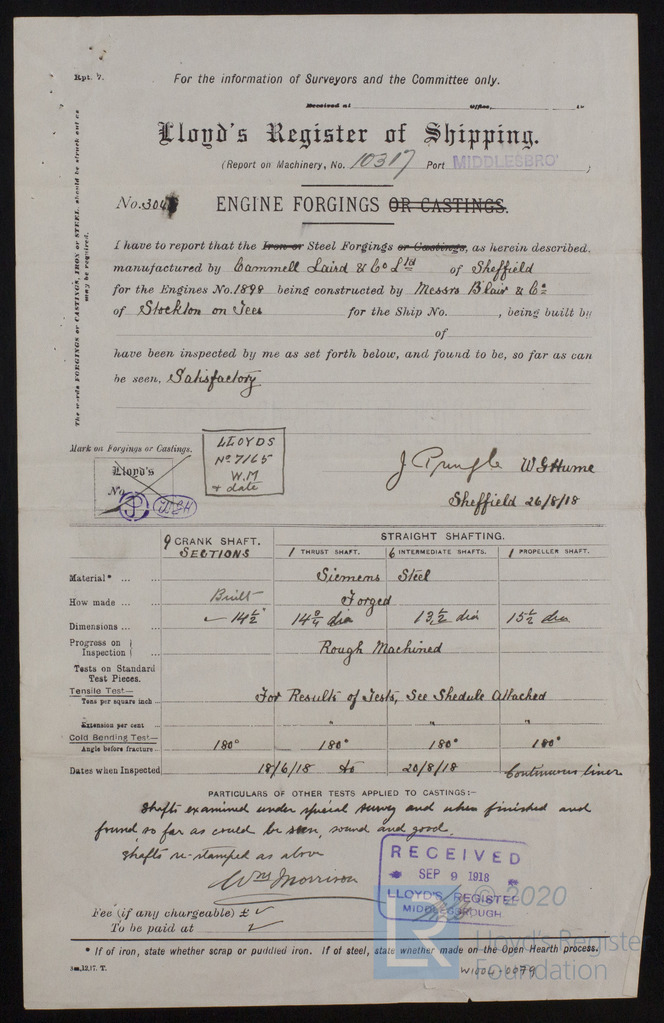 Rpt. 7.
For the information of Surveyors and the Committee only.
Received at Office, 19
Lloyd's Register of Shipping.
(Report on Machinery, No. 10317 Port MIDDLESBRO' )
The words FORGINGS or CASTINGS, IRON or STEEL should be struck out as
may be required.
ENGINE FORGINGS OR CASTINGS.
I have to report that the Iron or Steel Forgings or Castings, as herein described,
manufactured by Cammell Laird & Co Ltd of Sheffield
for the Engines No. 1898 being constructed by Messrs Blair & Co
of Stockton on Tees for the Ship No. , being built by
of
have been inspected by me as set forth below, and found to be, so far as can
be seen, Satisfactory
Mark on Forgings or Castings.
Lloyd's
No
LLOYDS
No 7165
W.M
+ date
J Pringle W G Hume
Sheffield 26/8/18
9 CRANK SHAFT. SECTIONS
STRAIGHT SHAFTING.
1 THRUST SHAFT. 6 INTERMEDIATE SHAFTS. 1 PROPELLER SHAFT.
Material* ... ... Siemens Steel
How made ... ... Built Forged
Dimensions ... ... 14½" 14¾ dia 13½ dia 15½ dia
Progress on Inspection } Rough Machined
Tests on Standard
Test Pieces.
Tensile Test—
Tons per square inch ... For Results of Tests, See Shedule Attached
Extension per cent ... " " "
Cold Bending Test—
Angle before fracture ... 180° 180° 180° 180°
Dates when Inspected 18/6/18 to 20/8/18 Continuous liner
PARTICULARS OF OTHER TESTS APPLIED TO CASTINGS:—
Shafts examined under special survey and when finished and
found, so far as could be seen, sound and good.
Shafts re-stamped as above
Wm Morrison
RECEIVED
SEP 9 1918
LLOYD'S REGISTER
MIDDLESBROUGH
Fee (if any chargeable) £
To be paid at
* If of iron, state whether scrap or puddled iron. If of steel, state whether made on the Open Hearth process.
3m,12,17. T.
W1004-0079
© 2020
LR
Lloyd's Register
Foundation